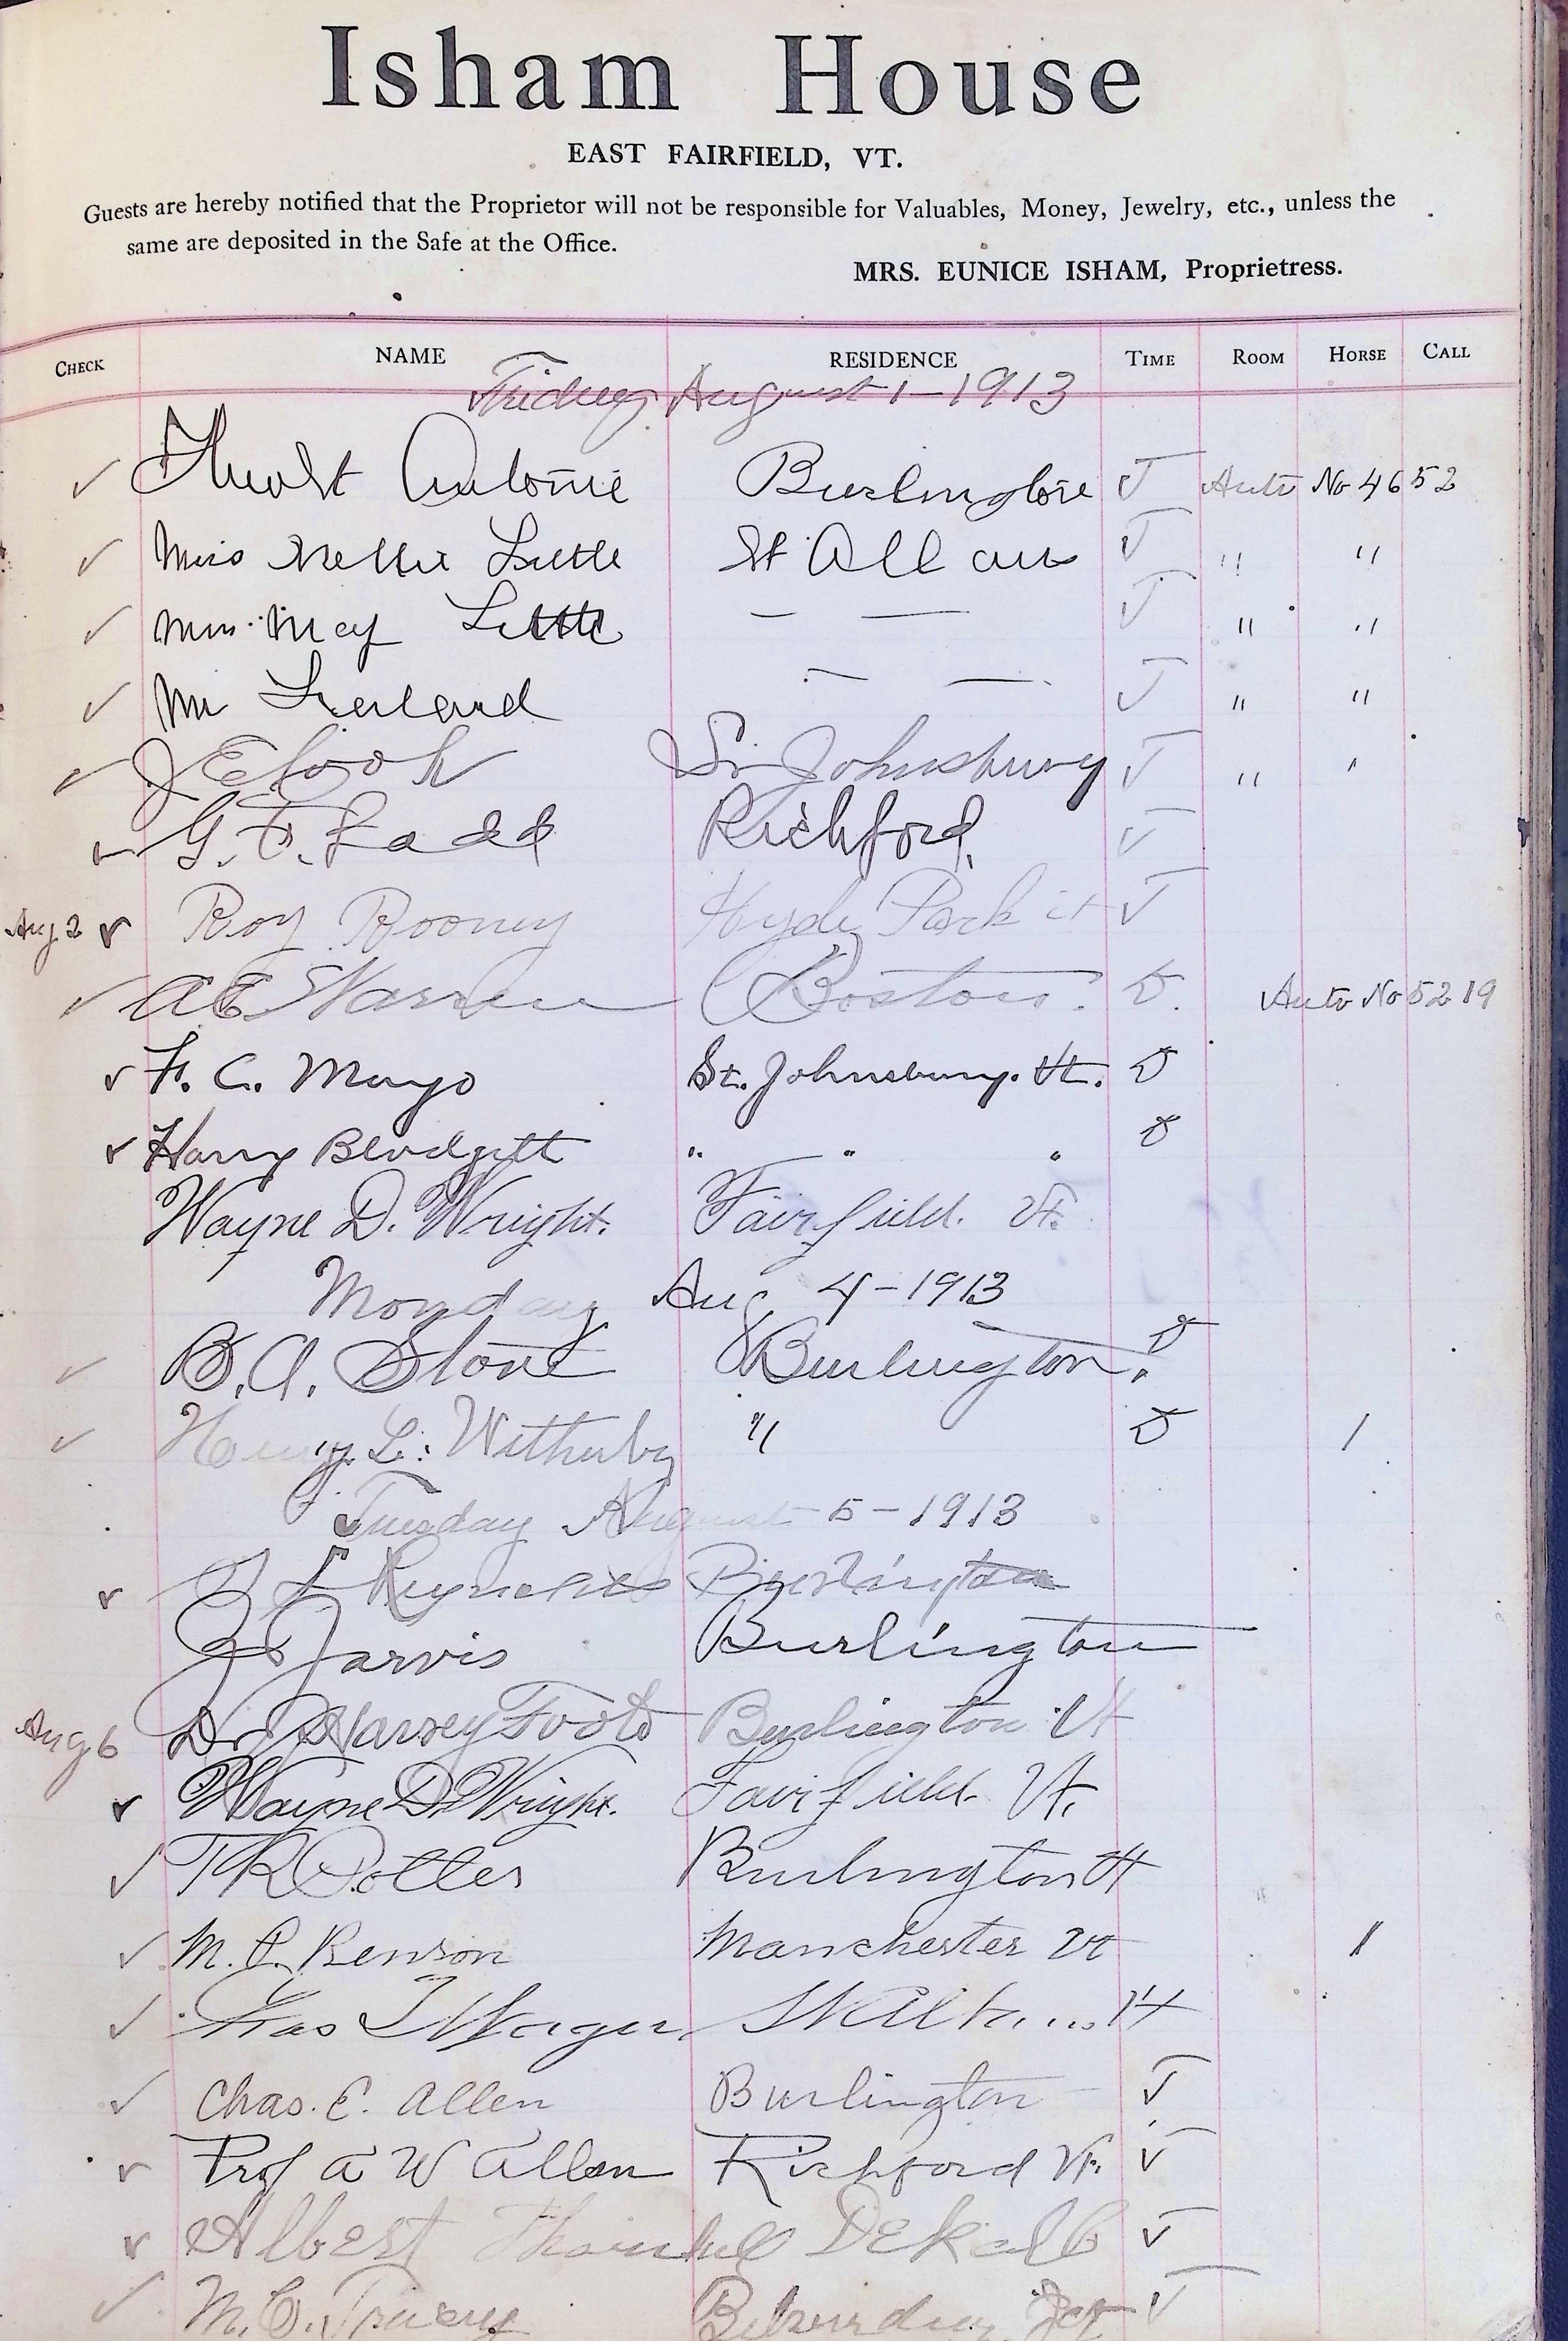 Isham House
EAST FAIRFIELD, VT.
Guests are hereby notified that the Proprietor will not be responsible for Valuables, Money, Jewelry, etc., unless the
same are deposited in the Safe at the Office.
MRS. EUNICE ISHAM, Proprietress.
CHECK NAME RESIDENCE TIME ROOM HORSE CALL
Friday August 1-1913
✓ Burlington Auto No 4652
✓ Miss Nellie Little St Albans " "
✓ May Little — — " "
✓ Mr — — " "
✓ J E Cook St Johnsbury " "
✓ G. F. Ladd Richford.
Aug 2 ✓ Roy Rooney Hyde Park Vt
✓ A E Warren Boston. Auto No 5219
✓ F. C. Mayo St. Johnsbury. Vt.
✓ Harry Blodgett " " "
Wayne D. Wright. Fairfield. Vt.
Monday Aug 4-1913
✓ B. A. Stone Burlington.
✓ Henry L. Witherby " /
Tuesday August 5-1913
✓ Reynolds Burlington
Jarvis Burlington
Aug 6 Dr J Harvey Foote Burlington Vt
✓ Wayne D. Wright. Fairfield Vt.
✓ T R Potter Burlington Vt
✓ M. C. Benson Manchester Vt /
✓ Chas Vt
✓ Chas. E. Allen Burlington
✓ Prof A W Allen Richford Vt.
✓ Albert DeKalb
✓ M. C.